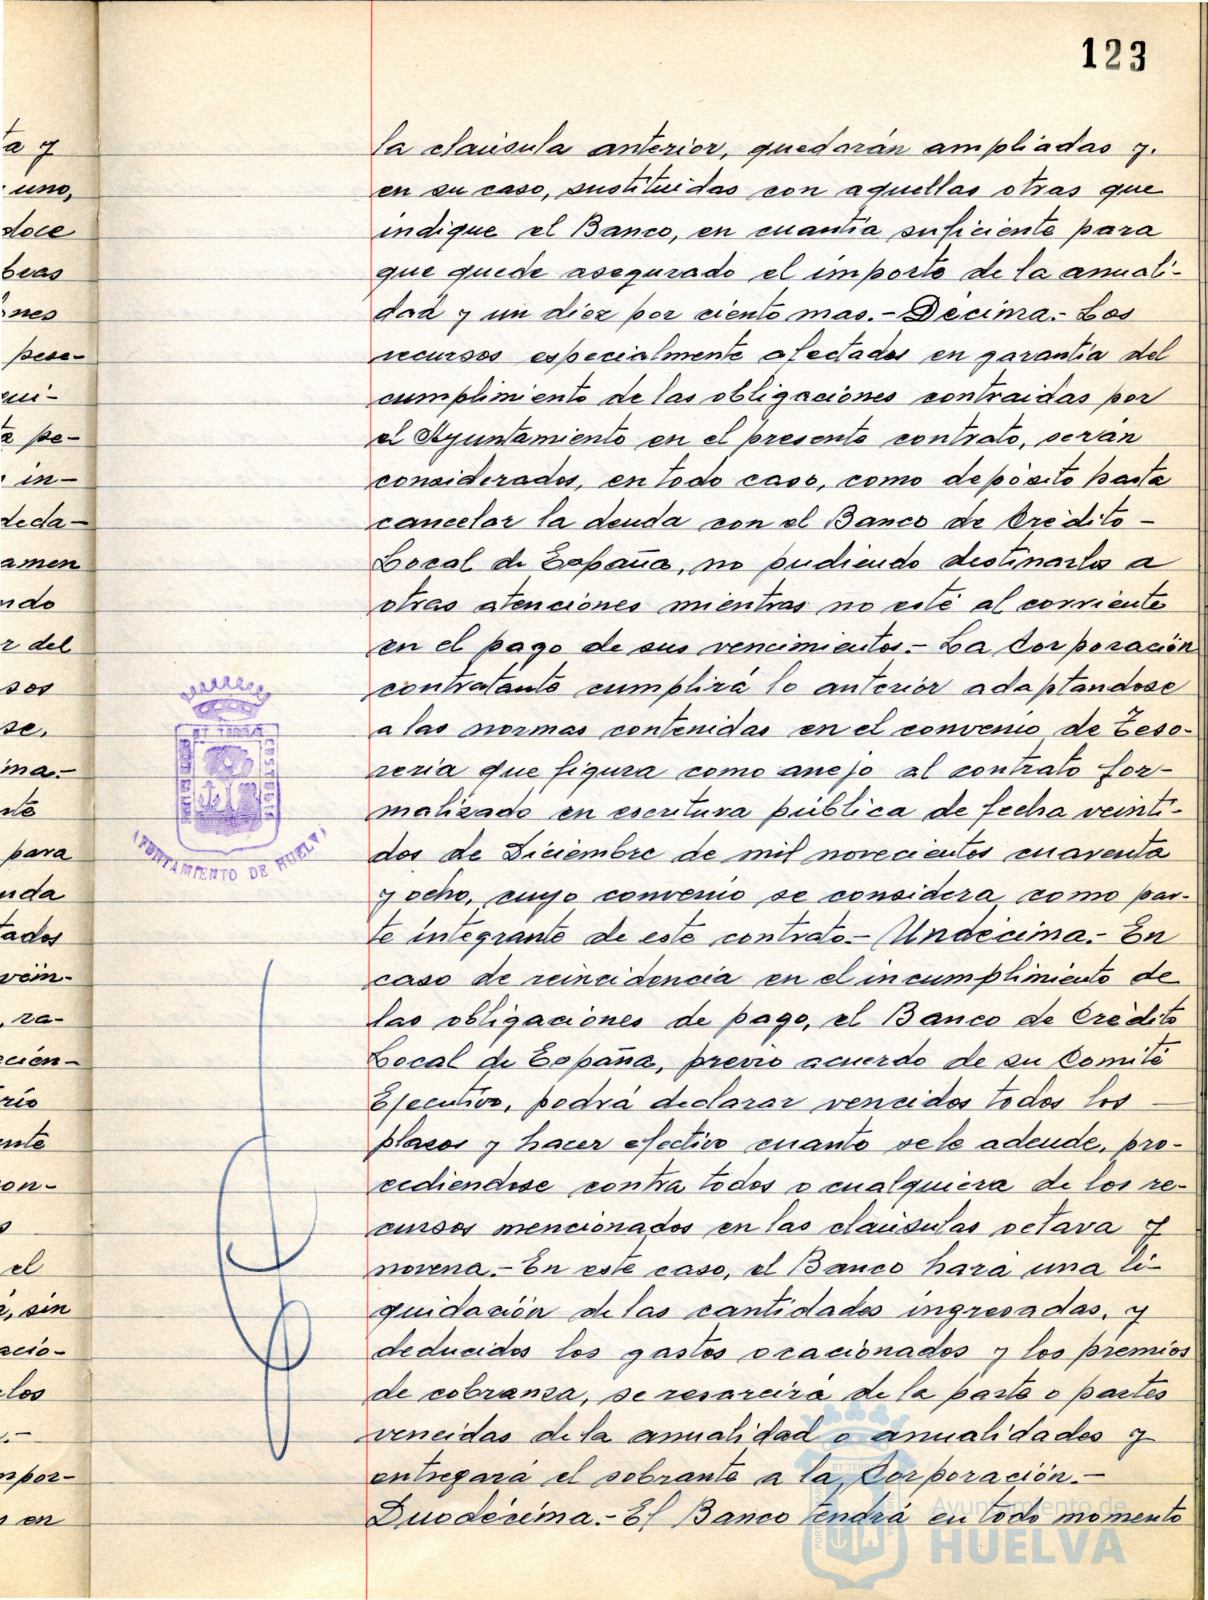 123
la claúsula anterior, quedarán ampliadas y.
en su caso, sustituidas con aquellas otras que
indique el Banco, en cuantía suficiente para
que quede asegurado el importe de la anuali-
dad y un diez por ciento mas.- Décima.- Los
recursos especialmente afectados en garantía del
cumplimiento de las obligaciones contraidas por
el Ayuntamiento en el presente contrato, serán
considerados, en todo caso, como depósito hasta
cancelar la deuda con el Banco de Crédito -
Local de España, no pudiendo destinarlos a
otras atenciones mientras no esté al corriente
en el pago de sus vencimientos.- La Corporación
contratante cumplirá lo anterior adaptandose
a las normas contenidas en el convenio de Teso-
reria que figura como anejo al contrato for-
malizado en escritura pública de fecha veinti-
dos de Diciembre de mil novecientos cuarenta
y ocho, cuyo convenio se considera como par-
te integrante de este contrato.- Undécima.- En
caso de reincidencia en el incumplimiento de
las obligaciones de pago, el Banco de Crédito
Local de España, previo acuerdo de su Comité
Ejecutivo, podrá declarar vencidos todos los
plazos y hacer efectivo cuanto se le adeude, pro-
cediendose contra todos o cualquiera de los re-
cursos mencionados en las claúsulas octava y
novena.- En este caso, el Banco hará una li-
quidación de las cantidades ingresadas, y
deducidos los gastos ocacionados y los premios
de cobranza, se resarcirá de la parte o partes
vencidas de la anualidad o anualidades y
entregará el sobrante a la Corporación.-
Duodécima.- El Banco tendrá en todo momento
ta y
uno,
doce
bras
ones
pese-
qui-
pe-
in-
deda-
amen
ndo
r del
sos
se,
ma.-
nte
para
uda
tados
vein-
ra-
ción-
rio
ente
on-
s
el
sin
acio-
los
.-
mpor-
en
AYUNTAMIENTO DE HUELVA
Ayuntamiento de
HUELVA